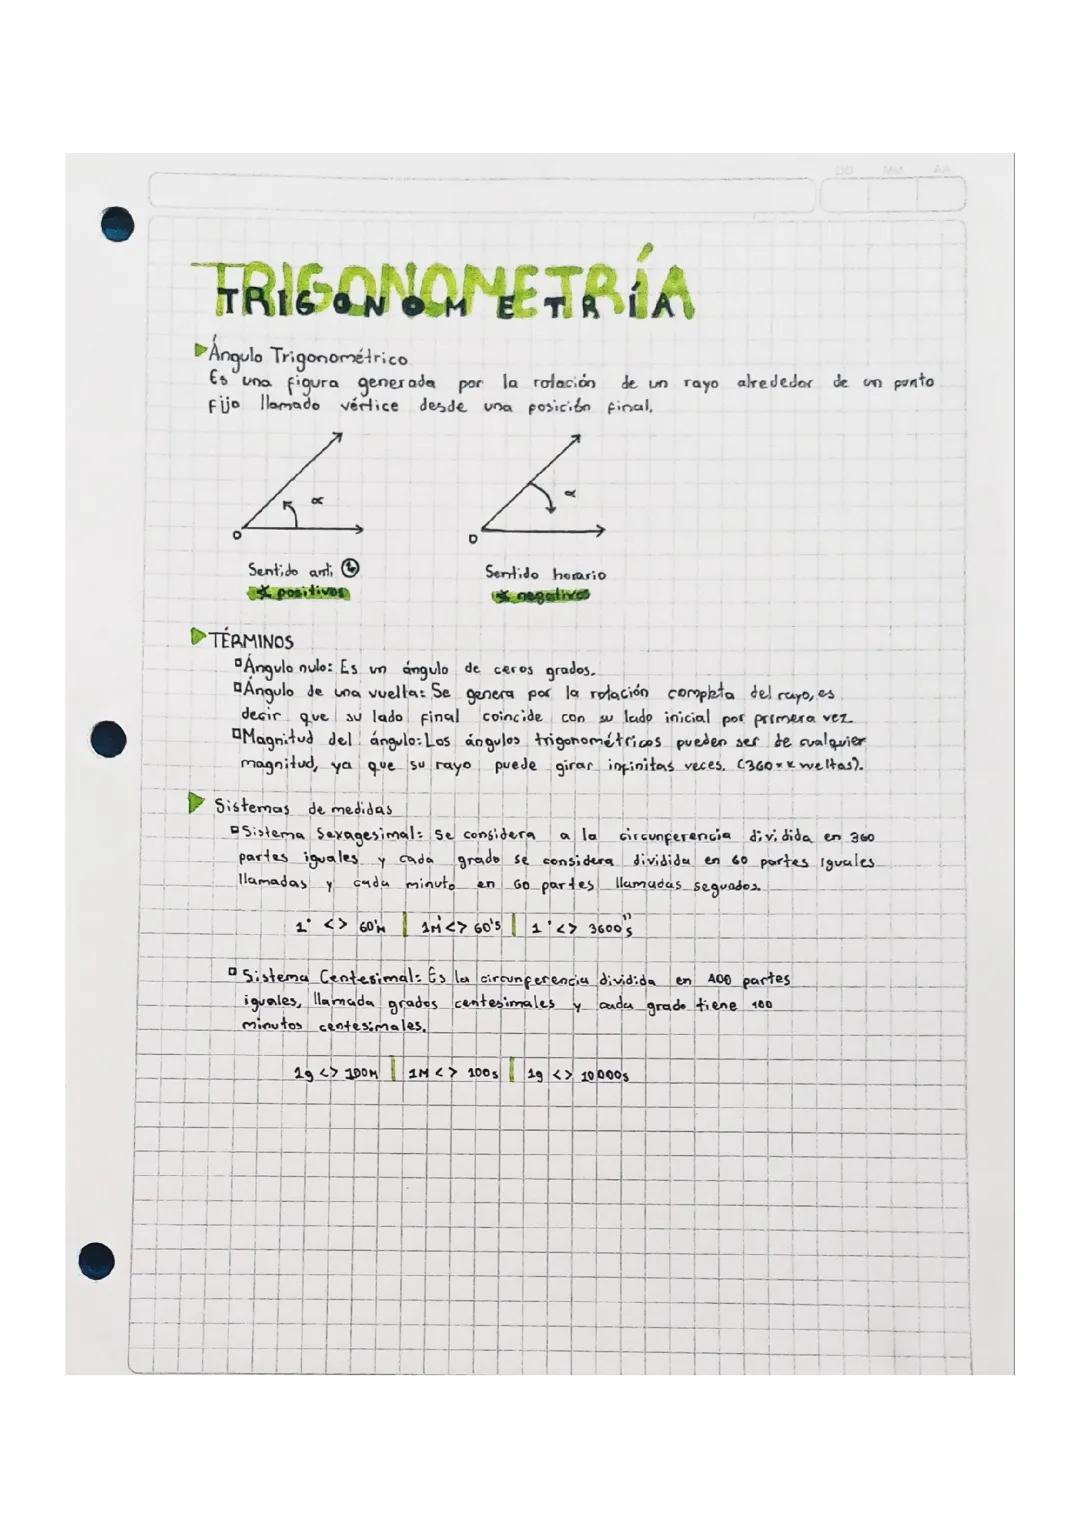 DD MM AA
TRIGONOMETRÍA
TRIGONOMETRÍA
Ángulo Trigonométrico
Es una figura generada por la rotación de un rayo alrededor de un punto
fijo llamado vértice desde una posición final.
α
O
α
O
Sentido anti
Sentido horario
∢ positivos
∢ negativos
TÉRMINOS
Ángulo nulo: Es un ángulo de ceros grados.
Ángulo de una vuelta: Se genera por la rotación completa del rayo, es
decir que su lado final coincide con su lado inicial por primera vez
Magnitud del ángulo: Los ángulos trigonométricos pueden ser de cualquier
magnitud, ya que su rayo puede girar infinitas veces. (360 × k vueltas).
Sistemas de medidas
Sistema Sexagesimal: Se considera a la circunferencia dividida en 360
partes iguales y cada grado se considera dividida en 60 partes iguales
llamadas y cada minuto en 60 partes llamadas segundos.
1° <> 60'M | 1M' <> 60's | 1° <> 3600''s
Sistema Centesimal: Es la circunferencia dividida en 400 partes
iguales, llamada grados centesimales y cada grado tiene 100
minutos centesimales.
1g <> 100M | 1M <> 100s | 1g <> 10000s